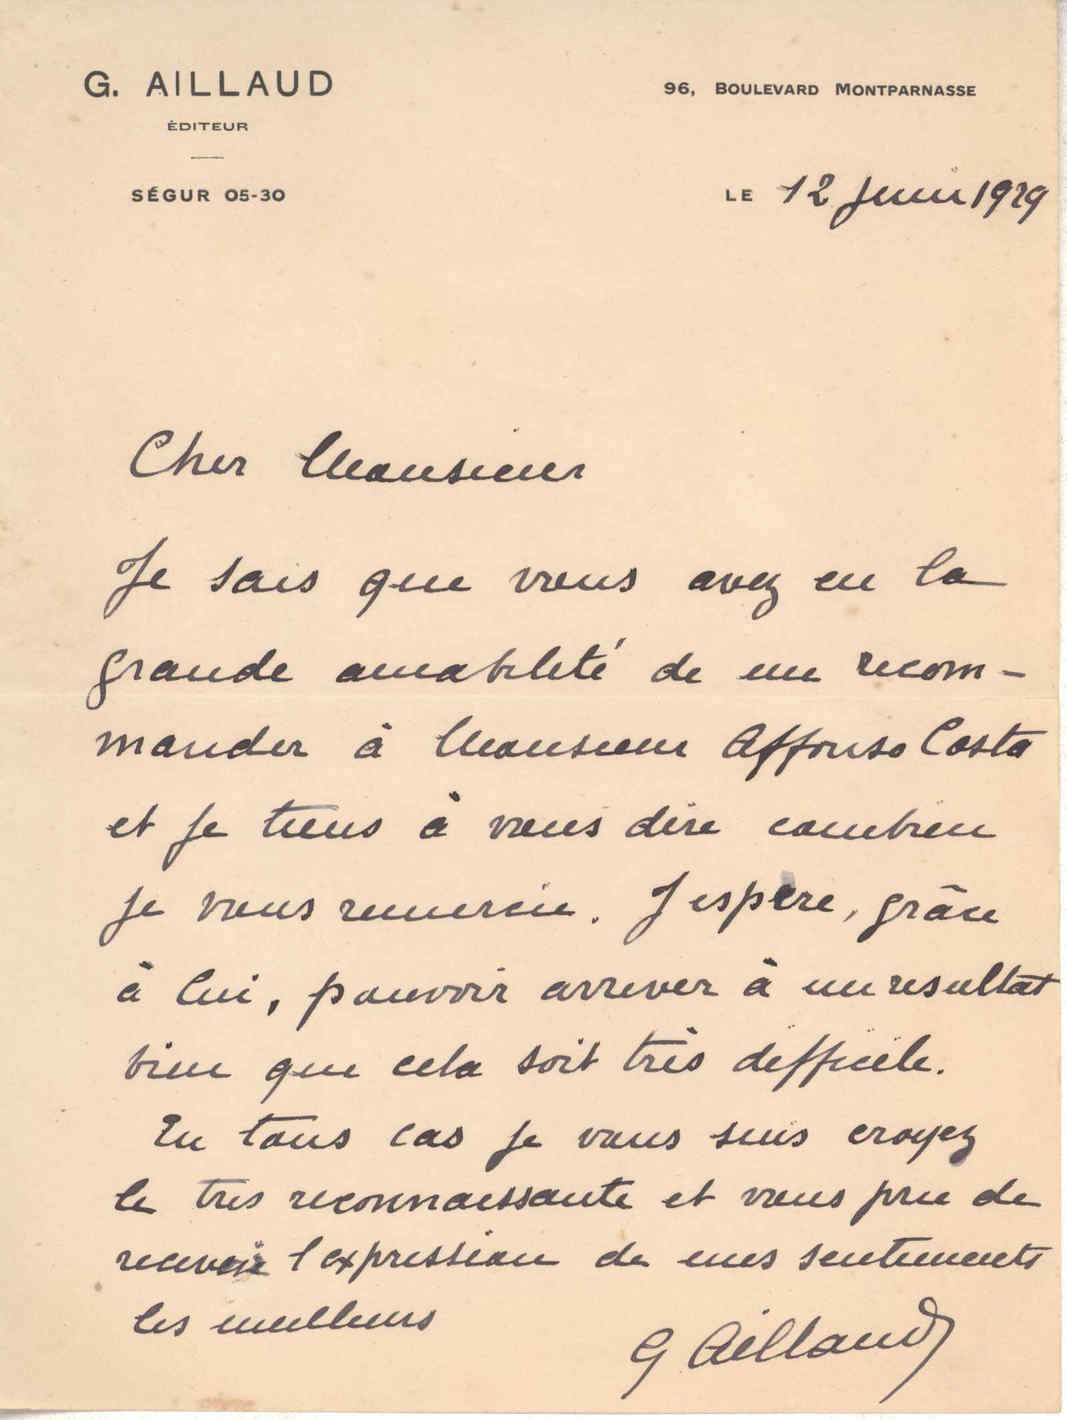 G. AILLAUD
ÉDITEUR
SÉGUR 05-30
96, BOULEVARD MONTPARNASSE
LE 12 Juin 1929
Cher Monsieur
Je sais que vous avez eu la
grande amabilité de me recom-
mander à Monsieur Affonso Costa
et je tiens à vous dire combien
je vous remercie. J'espère, grâce
à lui, pouvoir arriver à un resultat
bien que cela soit très difficile.
En tous cas je vous suis croyez
le tres reconnaissante et vous prie de
recevoir l'expression de mes sentiments
les meilleurs
G Aillaud